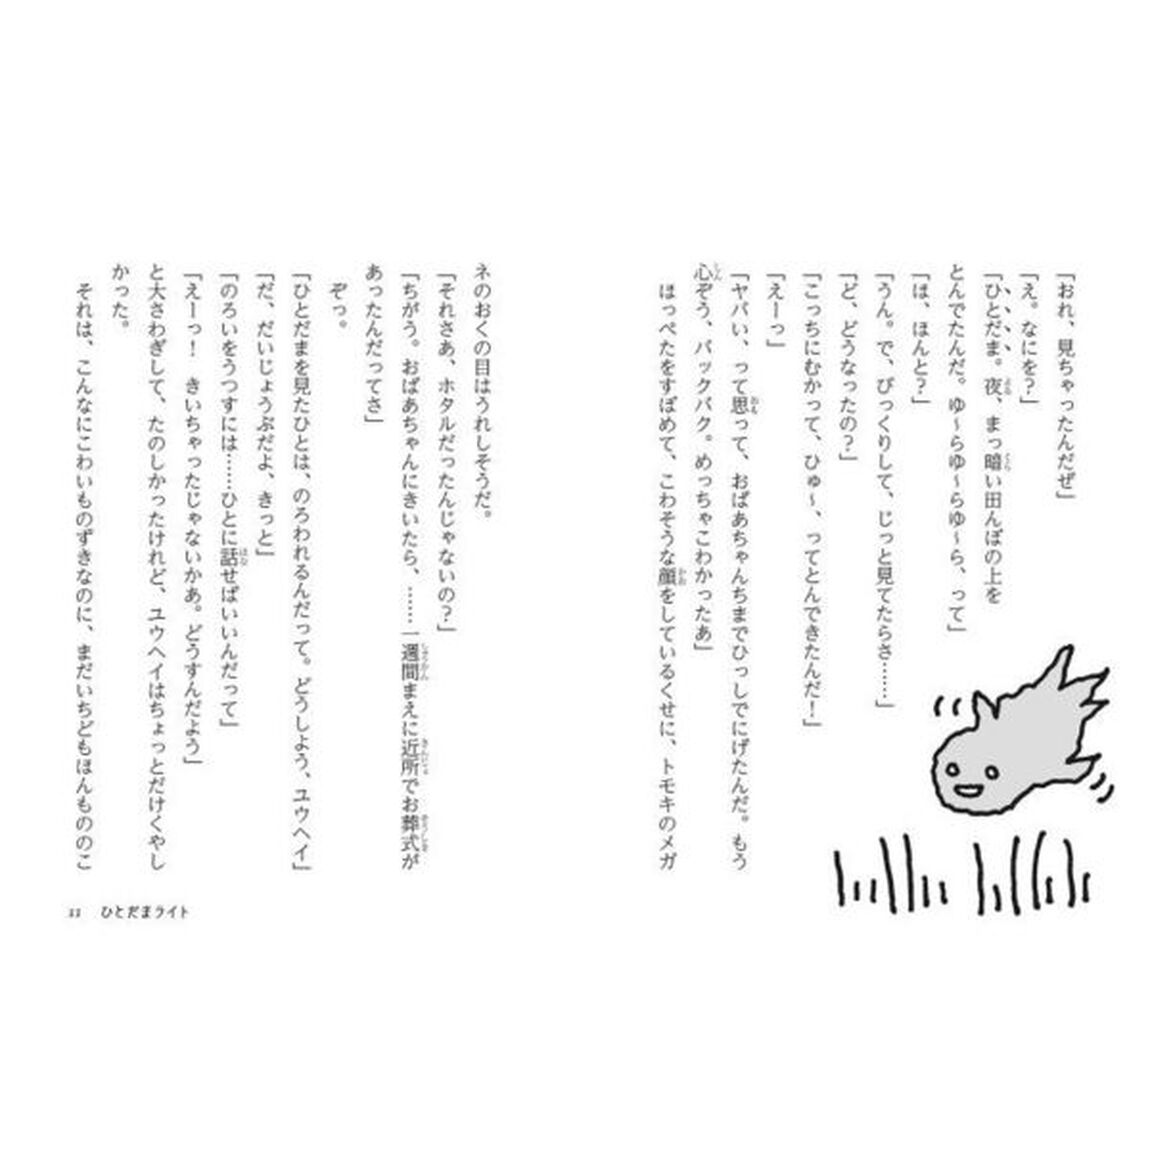 「おれ、見ちゃったんだぜ」
「え。なにを？」
「ひとだま。夜、まっ暗い田んぼの上を
とんでたんだ。ゆ〜らゆ〜らゆ〜ら、って」
「は、ほんと？」
「うん。で、びっくりして、じっと見てたらさ……」
「ど、どうなったの？」
「こっちにむかって、ひゅ〜、ってとんできたんだ！」
「えーっ」
「ヤバい、って思って、おばあちゃんちまでひっしでにげたんだ。もう
心ぞう、バックバク。めっちゃこわかったあ」
ほっぺたをすぼめて、こわそうな顔をしているくせに、トモキのメガ
ネのおくの目はうれしそうだ。
「それさあ、ホタルだったんじゃないの？」
「ちがう。おばあちゃんにきいたら、……一週間まえに近所でお葬式が
あったんだってさ」
ぞっ。
「ひとだまを見たひとは、のろわれるんだって。どうしよう、ユウヘイ」
「だ、だいじょうぶだよ、きっと」
「のろいをうつすには……ひとに話せばいいんだって」
「えーっ！　きいちゃったじゃないかあ。どうすんだよう」
と大さわぎして、たのしかったけれど、ユウヘイはちょっとだけくやし
かった。
それは、こんなにこわいものずきなのに、まだいちどもほんもののこ
11 ひとだまライト